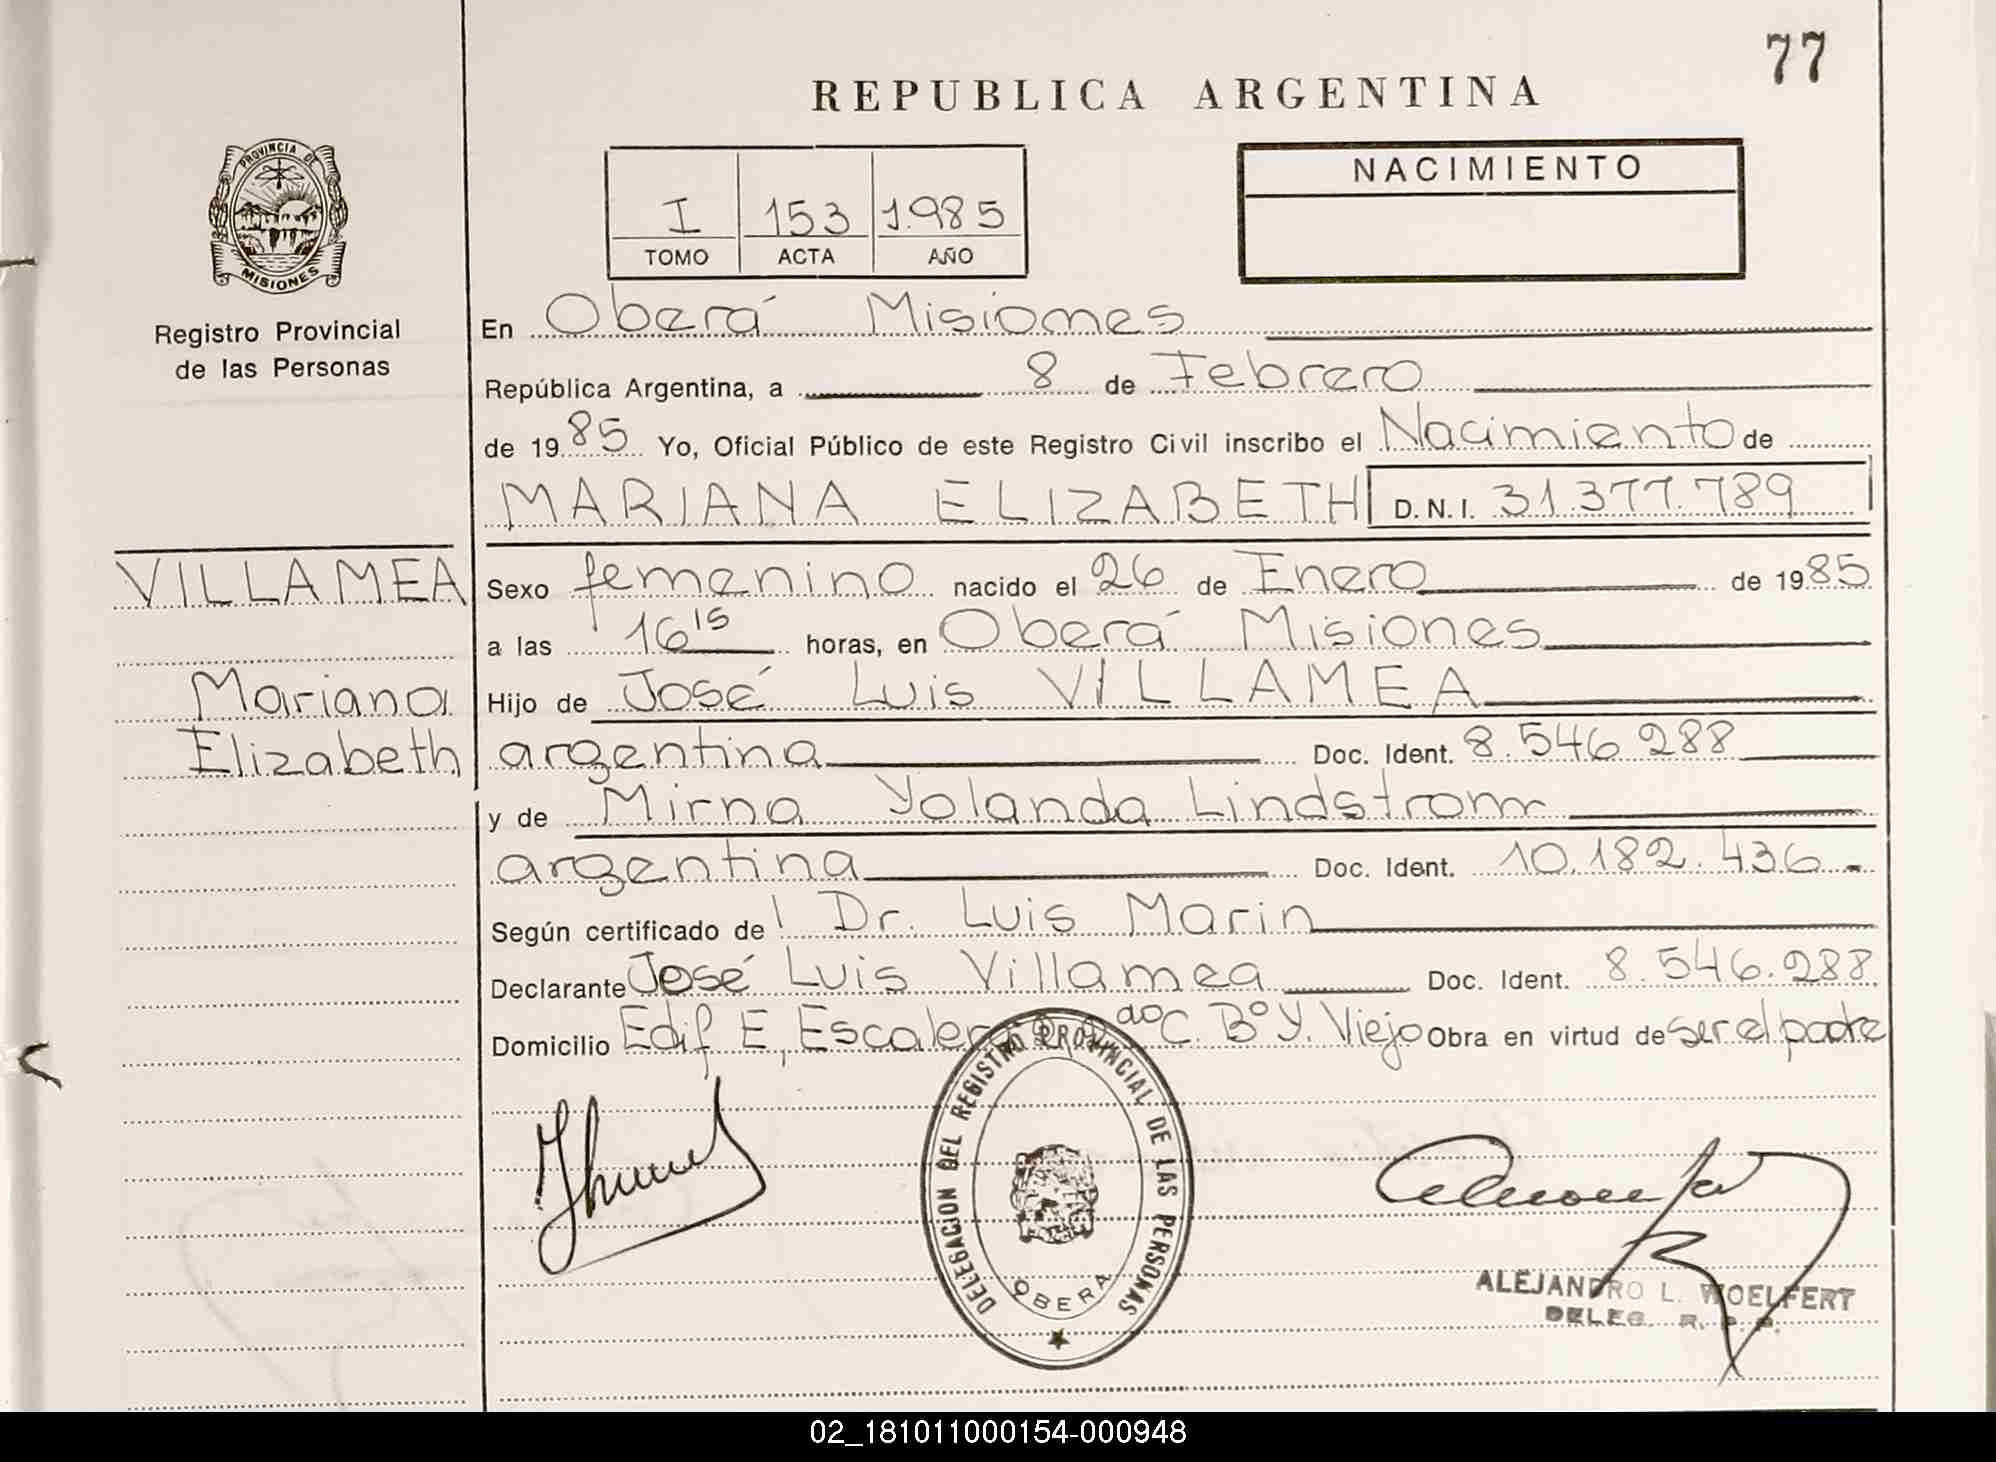 77
REPUBLICA ARGENTINA
PROVINCIA DE
MISIONES
Registro Provincial
de las Personas
I 153 1.985
TOMO ACTA AÑO
NACIMIENTO
En Oberá Misiones
República Argentina, a 8 de Febrero
de 1985 Yo, Oficial Público de este Registro Civil inscribo el Nacimiento de
MARIANA ELIZABETH D.N.I. 31.377.789
VILLAMEA
Mariana
Elizabeth
Sexo femenino nacido el 26 de Enero de 1985
a las 16 15 horas, en Oberá Misiones
Hijo de José Luis VILLAMEA
argentina Doc. Ident. 8.546.288
y de Mirna Yolanda Lindstrom
argentina Doc. Ident. 10.182.436.-
Según certificado del Dr. Luis Marin
Declarante José Luis Villamea Doc. Ident. 8.546.288
Domicilio Edif E, Escalera C. Bº Y. Viejo Obra en virtud de ser el padre
DELEGACION DEL REGISTRO PROVINCIAL DE LAS PERSONAS
OBERA
ALEJANDRO L. WOELFERT
DELEG. R. P. P.
02_181011000154-000948